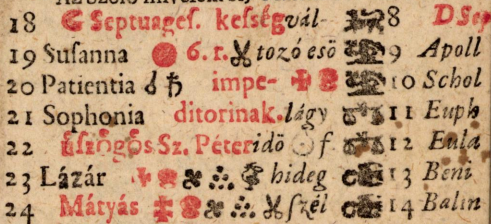 18 G Septuages. kesség vál- 8 D Sep
19 Susanna 6. r. tozó esö 9 Apoll
20 Patientia ☌ ♄ impe- 10 Schol
21 Sophonia ditorinak. lágy 11 Euph
22 üszögös Sz. Péter idö ☉ f. 12 Eula
23 Lázár hideg 13 Beni
24 Mátyás szél 14 Balin